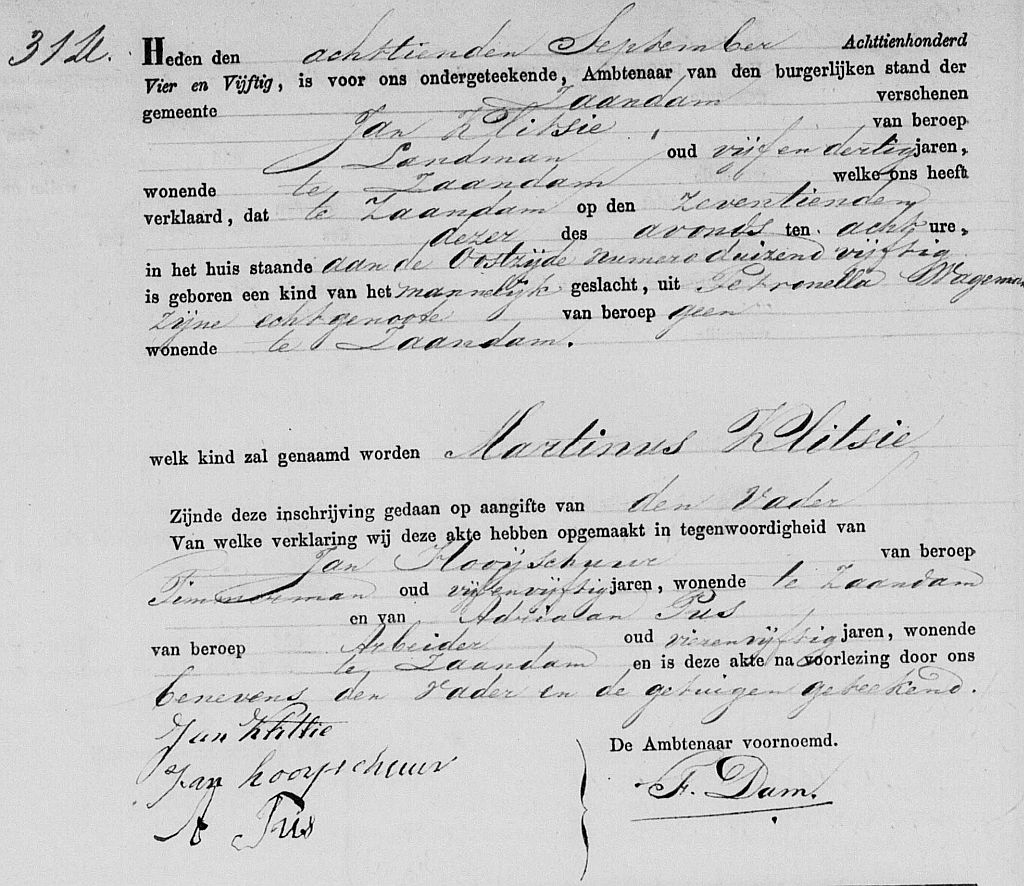 Heden den achttienden September Achttienhonderd
Vier en Vijftig, is voor ons ondergeteekende, Ambtenaar van den burgerlijken stand der
gemeente Zaandam verschenen
Jan Klitsie van beroep
Landman oud vijf en dertig jaren,
wonende te Zaandam welke ons heeft
verklaard, dat te Zaandam op den zeventienden
dezer des avonds ten acht ure,
in het huis staande aan de Oostzijde numero duizend vijftig
is geboren een kind van het mannelijk geslacht, uit Petronella Wageman
zijne echtgenoote van beroep geen
wonende te Zaandam.
welk kind zal genaamd worden Martinus Klitsie
Zijnde deze inschrijving gedaan op aangifte van den Vader
Van welke verklaring wij deze akte hebben opgemaakt in tegenwoordigheid van
Jan Hooijschuur van beroep
Timmerman oud vijfenvijftig jaren, wonende te Zaandam
en van Adriaan Pus
van beroep Arbeider oud vierenvijftig jaren, wonende
te Zaandam en is deze akte na voorlezing door ons
benevens den Vader en de getuigen geteekend.
Jan Klitsie
Jan hooyschuur
A Pus
De Ambtenaar voornoemd.
F. Dam.